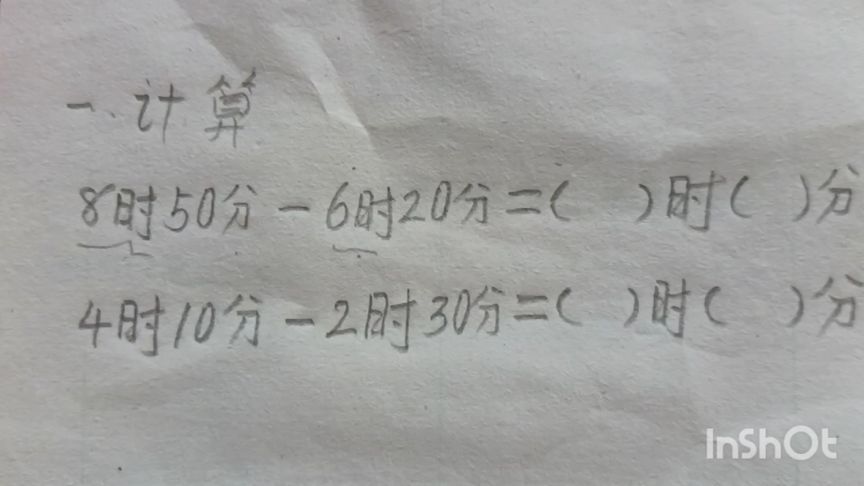 一.计算
8时50分-6时20分=( )时( )分
4时10分-2时30分=( )时( )分
InShOt